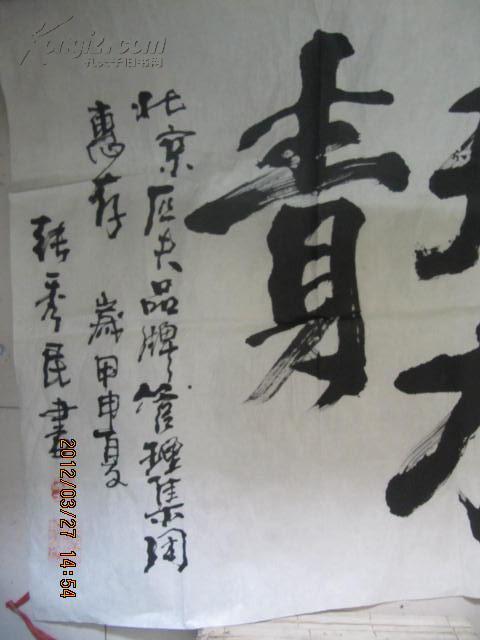 Kongfz.com
孔夫子旧书网
責
北京匠夫品牌管理集团
惠存
歲甲申夏
張秀民書
2012/03/27 14:54